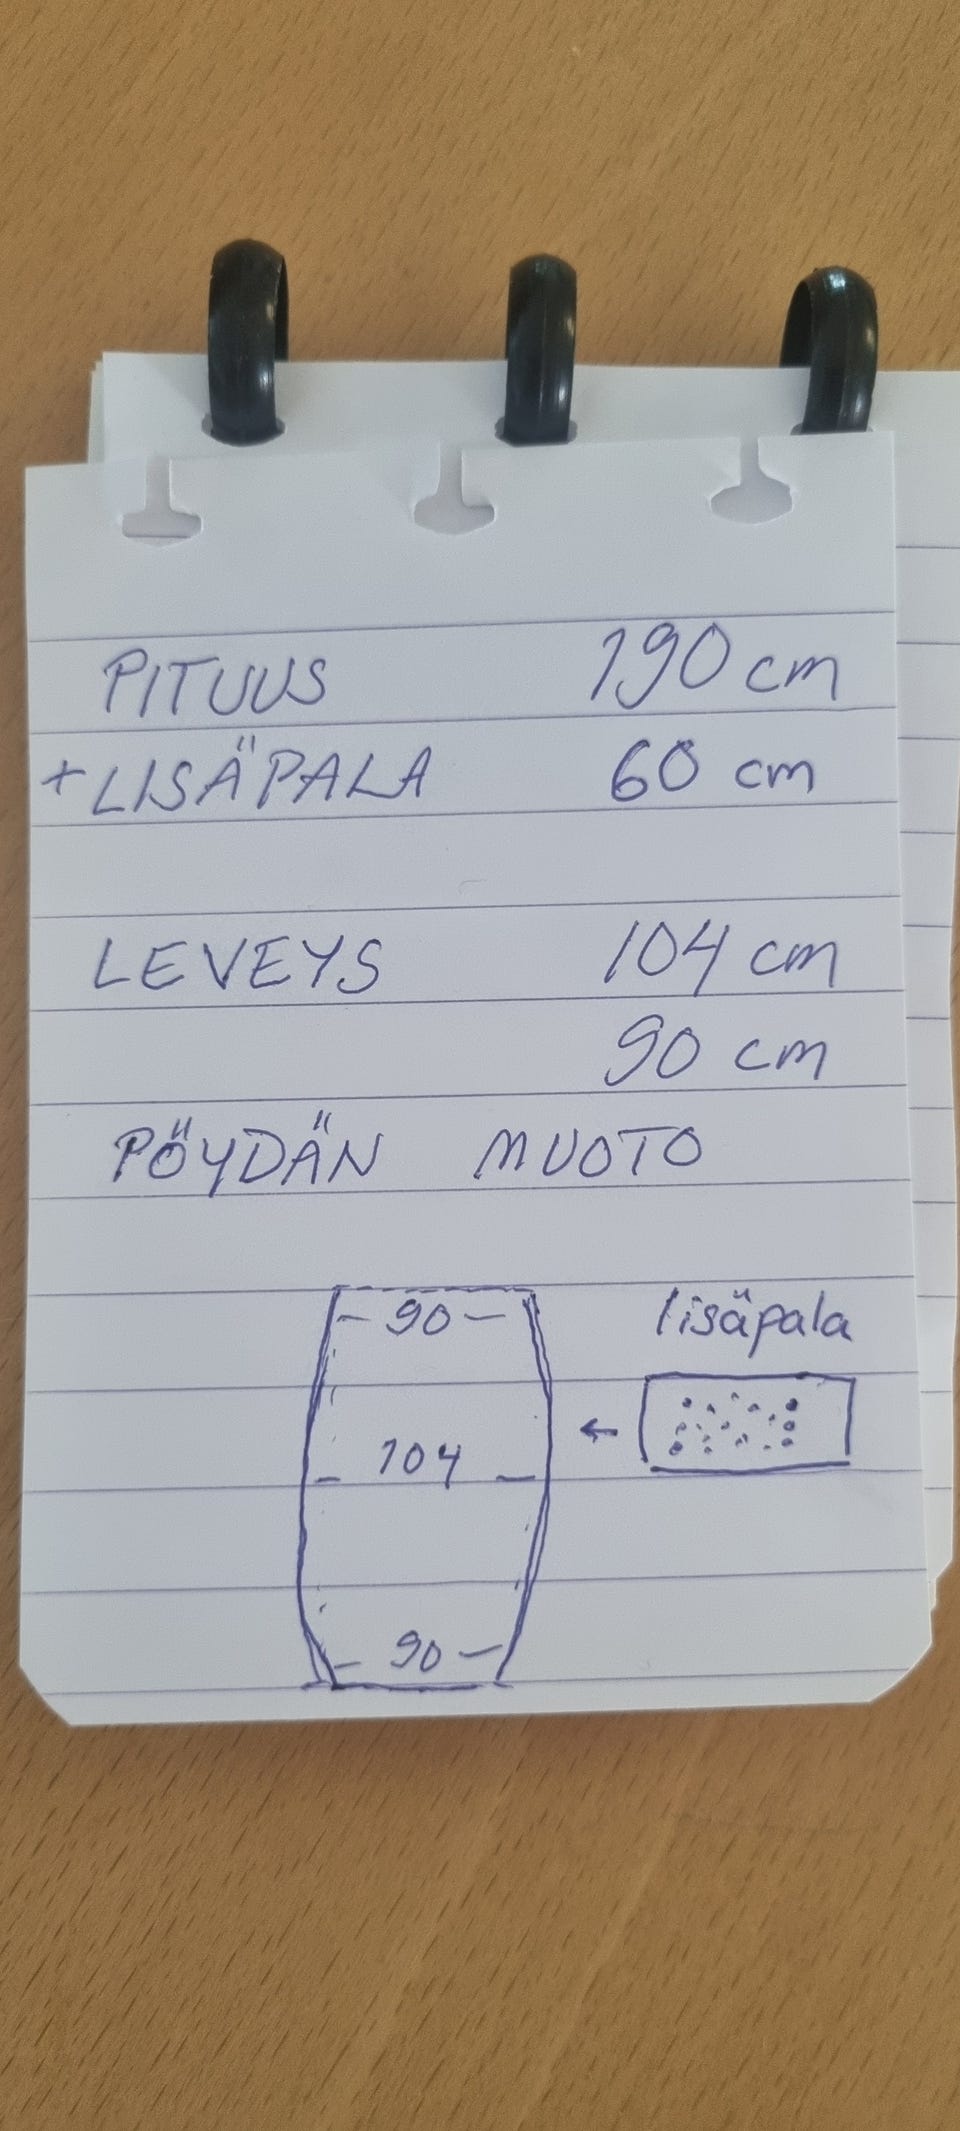 PITUUS 190 cm
+ LISÄPALA 60 cm
LEVEYS 104 cm
90 cm
PÖYDÄN MUOTO
- 90 -
lisäpala
- 104 -
- 90 -